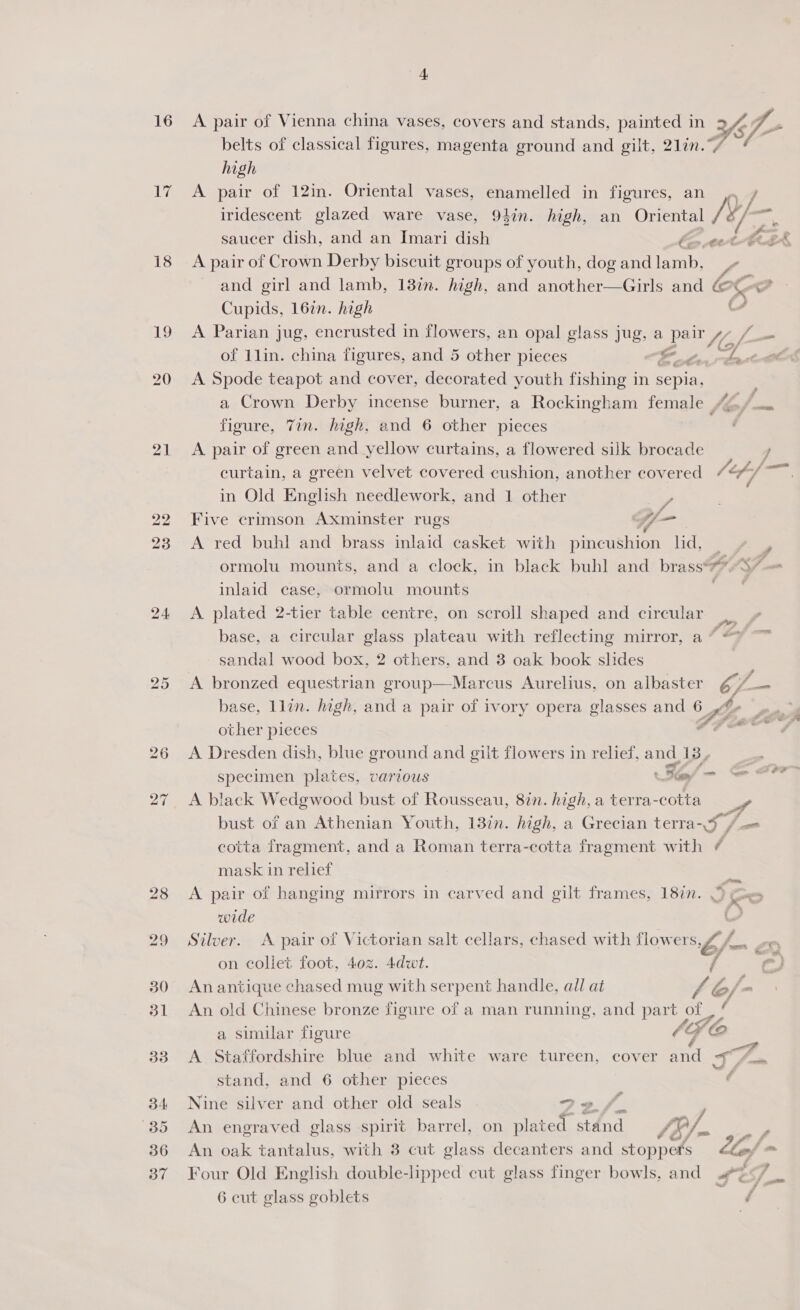 4
16 A pair of Vienna china vases, covers and stands, painted in
belts of classical figures, magenta ground and gilt, 21in.
high
17 A pair of 12in. Oriental vases, enamelled in figures, an
iridescent glazed ware vase, 9½in. high, an Oriental
saucer dish, and an Imari dish
18 A pair of Crown Derby biscuit groups of youth, dog and lamb,
and girl and lamb, 13in. high, and another—Girls and
Cupids, 16in. high
19 A Parian jug, encrusted in flowers, an opal glass jug, a pair
of 11in. china figures, and 5 other pieces
20 A Spode teapot and cover, decorated youth fishing in sepia,
a Crown Derby incense burner, a Rockingham female
figure, 7in. high, and 6 other pieces
21 A pair of green and yellow curtains, a flowered silk brocade
curtain, a green velvet covered cushion, another covered
in Old English needlework, and 1 other
22 Five crimson Axminster rugs
23 A red buhl and brass inlaid casket with pincushion lid,
ormolu mounts, and a clock, in black buhl and brass
inlaid case, ormolu mounts
24 A plated 2-tier table centre, on scroll shaped and circular
base, a circular glass plateau with reflecting mirror, a
sandal wood box, 2 others, and 3 oak book slides
25 A bronzed equestrian group—Marcus Aurelius, on albaster
base, 11in. high, and a pair of ivory opera glasses and 6
other pieces
26 A Dresden dish, blue ground and gilt flowers in relief, and 13
specimen plates, various
27 A black Wedgwood bust of Rousseau, 8in. high, a terra-cotta
bust of an Athenian Youth, 13in. high, a Grecian terra-
cotta fragment, and a Roman terra-cotta fragment with
mask in relief
28 A pair of hanging mirrors in carved and gilt frames, 18in.
wide
29 Silver. A pair of Victorian salt cellars, chased with flowers,
on collet foot, 4oz. 4dwt.
30 An antique chased mug with serpent handle, all at
31 An old Chinese bronze figure of a man running, and part of
a similar figure
33 A Staffordshire blue and white ware tureen, cover and
stand, and 6 other pieces
34 Nine silver and other old seals
35 An engraved glass spirit barrel, on plated stand
36 An oak tantalus, with 3 cut glass decanters and stoppers
37 Four Old English double-lipped cut glass finger bowls, and
6 cut glass goblets